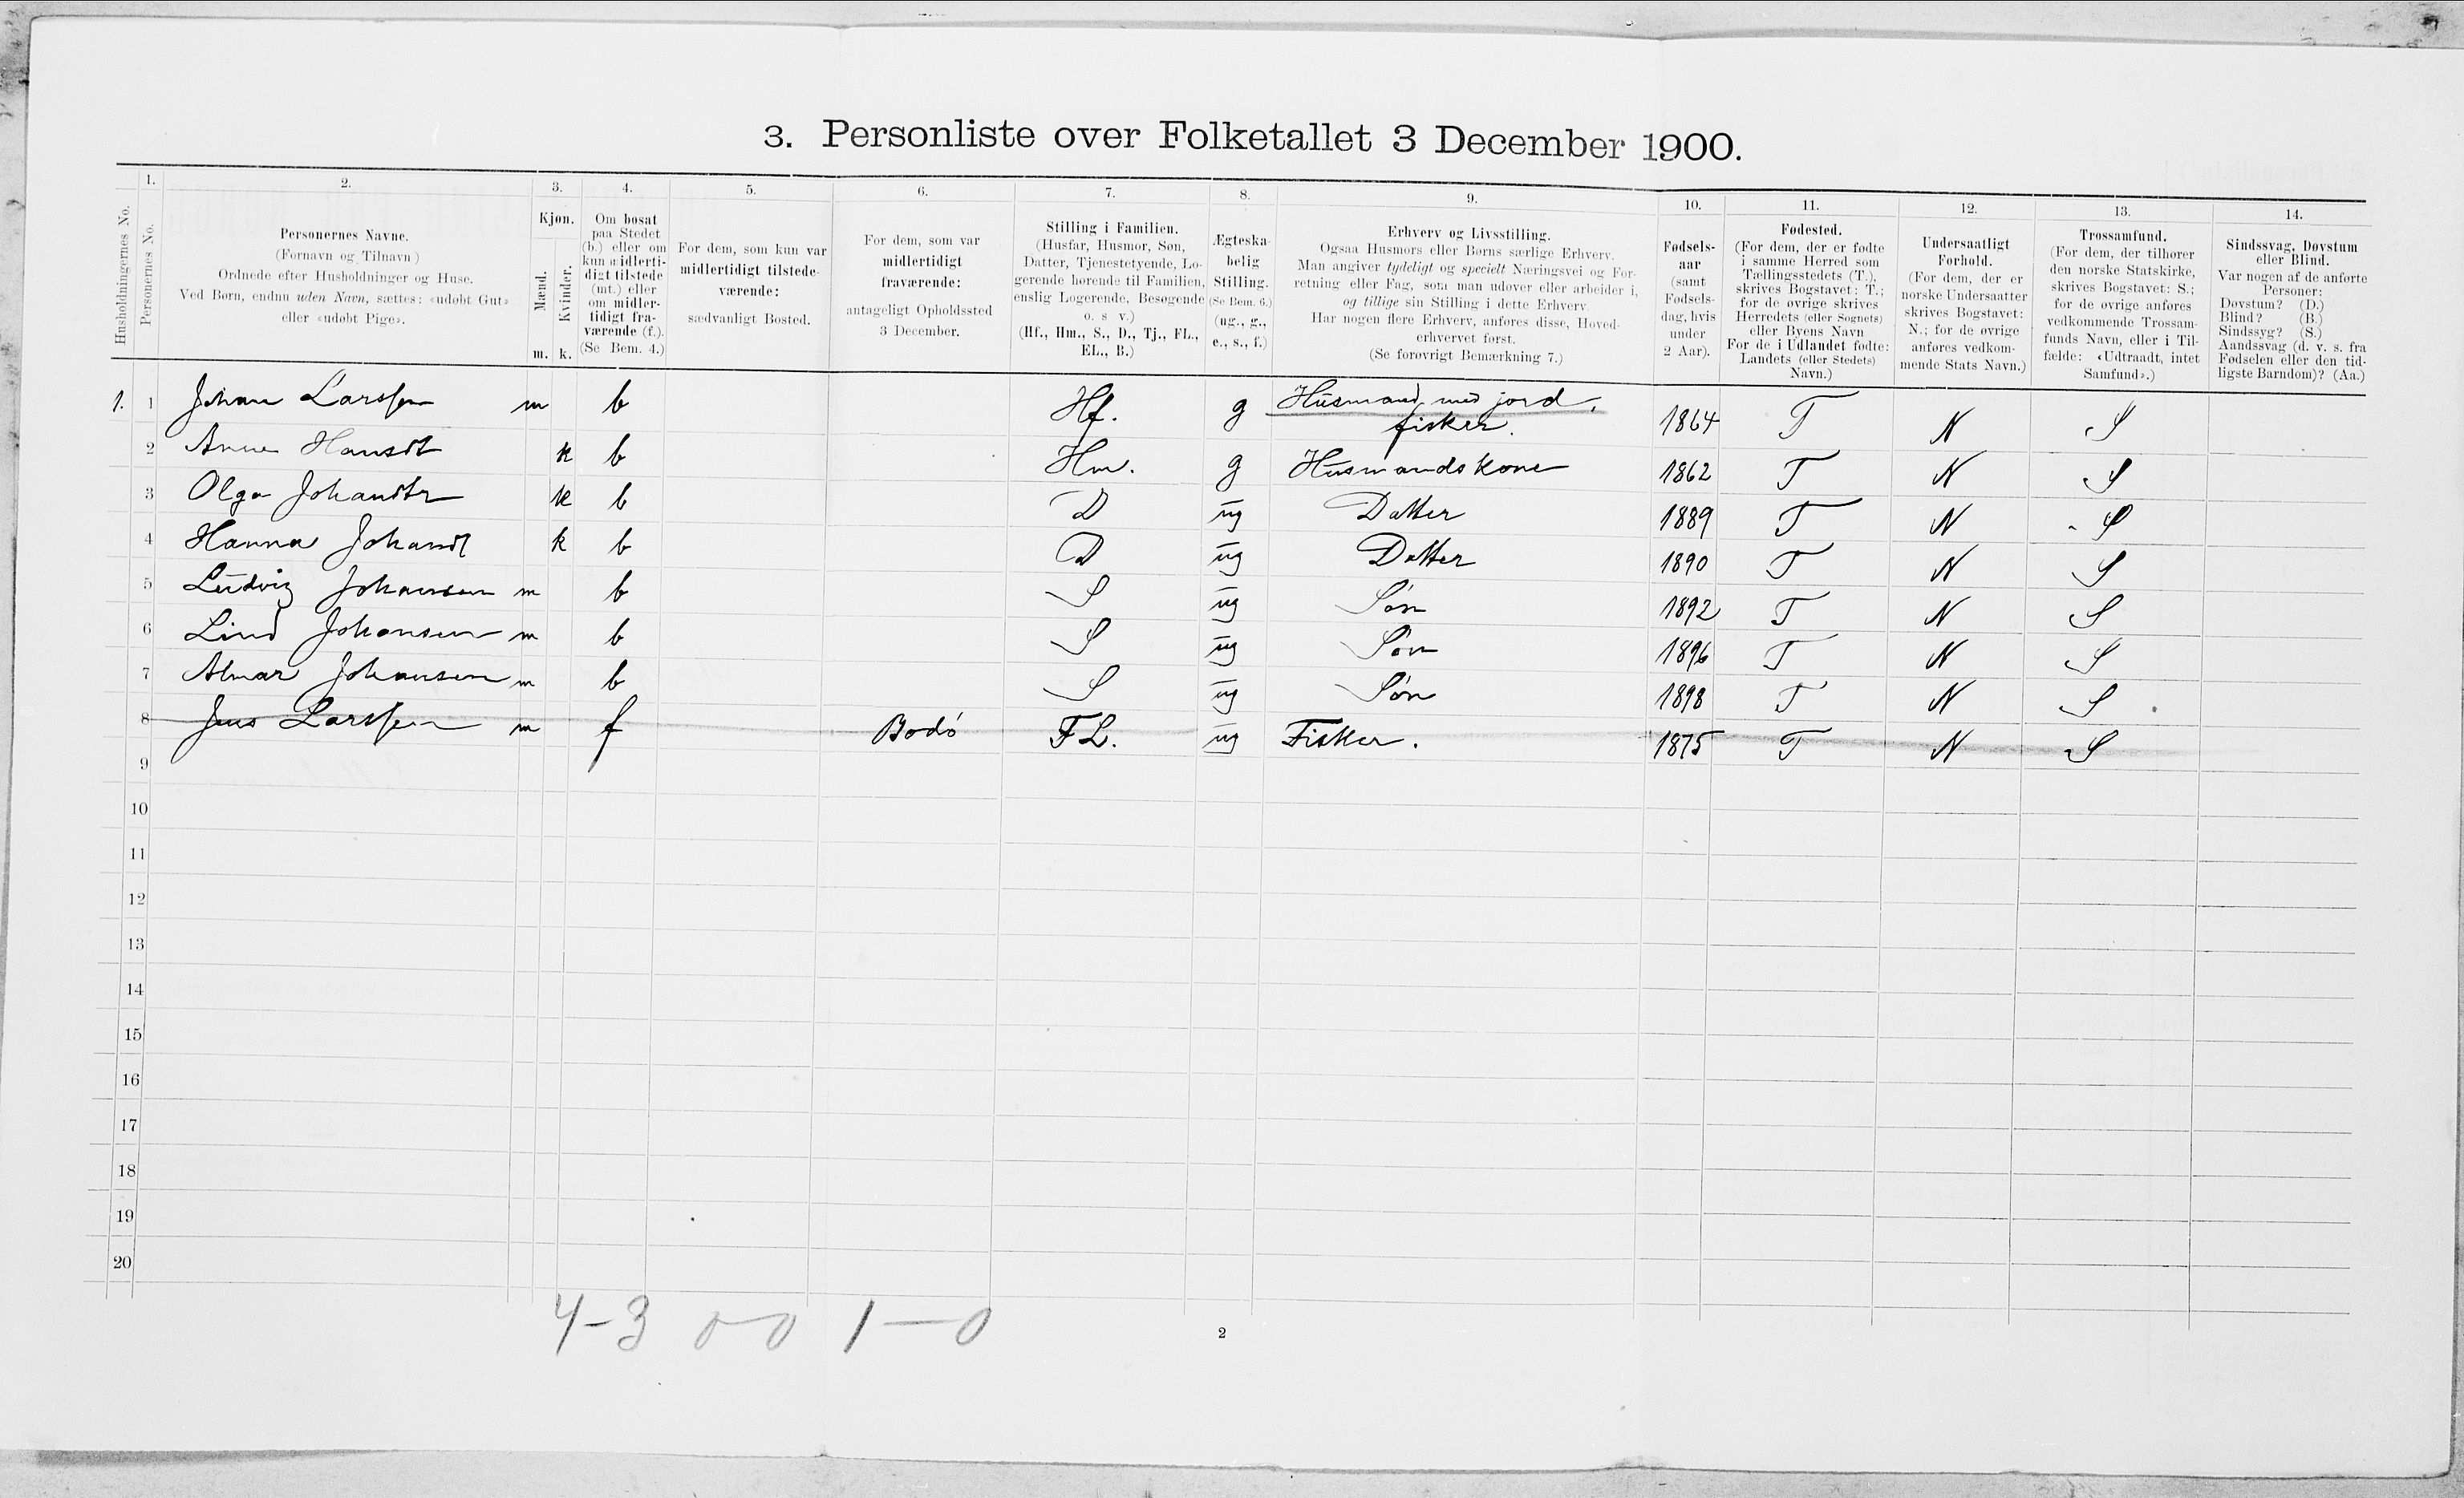 3. Personliste over Folketallet 3 December 1900.
Husholdningernes No.
1.
Personernes No.
2.
Personernes Navne.
(Fornavn og Tilnavn)
Ordnede efter Husholdninger og Huse.
Ved Børn, endnu uden Navn, sættes: «udøbt Gut»
eller «udøbt Pige».
3.
Kjøn.
Mænd.
Kvinder.
m. k.
4.
Om bosat
paa Stedet
(b.) eller om
kun midlerti-
digt tilstede
(mt.) eller
om midler-
tidigt fra-
værende (f.).
(Se Bem. 4.)
5.
For dem, som kun var
midlertidigt tilstede-
værende:
sædvanligt Bosted.
6.
For dem, som var
midlertidigt
fraværende:
antageligt Opholdssted
3 December.
7.
Stilling i Familien.
(Husfar, Husmor, Søn,
Datter, Tjenestetyende, Lo-
gerende hørende til Familien,
enslig Logerende, Besøgende
o. s v.)
(Hf., Hm., S., D., Tj., FL.,
EL., B.)
8.
Ægteska-
belig
Stilling.
(Se Bem. 6.)
(ug., g.,
e., s., f.)
9.
Erhverv og Livsstilling.
Ogsaa Husmors eller Børns særlige Erhverv.
Man angiver tydeligt og specielt Næringsvei og For-
retning eller Fag, som man udøver eller arbeider i,
og tillige sin Stilling i dette Erhverv.
Har nogen flere Erhverv, anføres disse, Hoved-
erhvervet først.
(Se forøvrigt Bemærkning 7.)
10.
Fødsels-
aar
(samt
Fødsels-
dag, hvis
under
2 Aar).
11.
Fødested.
(For dem, der er fødte
i samme Herred som
Tællingsstedets (T.),
skrives Bogstavet: T.;
for de øvrige skrives
Herredets (eller Sognets)
eller Byens Navn
For de i Udlandet fødte:
Landets (eller Stedets)
Navn.)
12.
Undersaatligt
Forhold.
(For dem, der er
norske Undersaatter
skrives Bogstavet:
N.; for de øvrige
anføres vedkom-
mende Stats Navn.)
13.
Trossamfund.
(For dem, der tilhører
den norske Statskirke,
skrives Bogstavet: S.;
for de øvrige anføres
vedkommende Trossam-
funds Navn, eller i Til-
fælde: «Udtraadt, intet
Samfund».)
14.
Sindssvag, Døvstum
eller Blind.
Var nogen af de anførte
Personer:
Døvstum? (D.)
Blind? (B.)
Sindssyg? (S.)
Aandssvag (d. v. s. fra
Fødselen eller den tid-
ligste Barndom)? (Aa.)
1. 1 Johan Larssen m b Hf. g Husmand med jord, fisker. 1864 T N S
2 Anna Hansdt k b Hm. g Husmandskone 1862 T N S
3 Olga Johandtr k b D ug Datter 1889 T N S
4 Hanna Johandt k b D ug Datter 1890 T N S
5 Ludvig Johansen m b S ug Søn 1892 T N S
6 Lind Johansen m b S ug Søn 1896 T N S
7 Almar Johansen m b S ug Søn 1898 T N S
8 Jens Larssen m f Bodó FL. ug Fisker. 1875 T N S
9
10
11
12
13
14
15
16
17
18
19
20
4-3 0-0 1-0
2